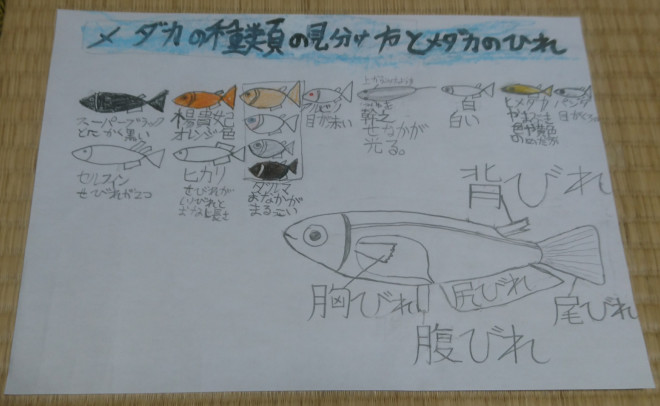 メダカの種類の見分け方とメダカのひれ
スーパーブラック
とにかく黒い
楊貴妃
オレンジ色
目が赤い
幹之
せなかが
光る。
白
白い
ヒメダカ
パンダ
セルフィン
せびれが2つ
ヒカリ
せびれが
しりびれと
おなじ長さ
ダルマ
おなかが
まるっこい
背びれ
胸びれ
尻びれ
尾びれ
腹びれ